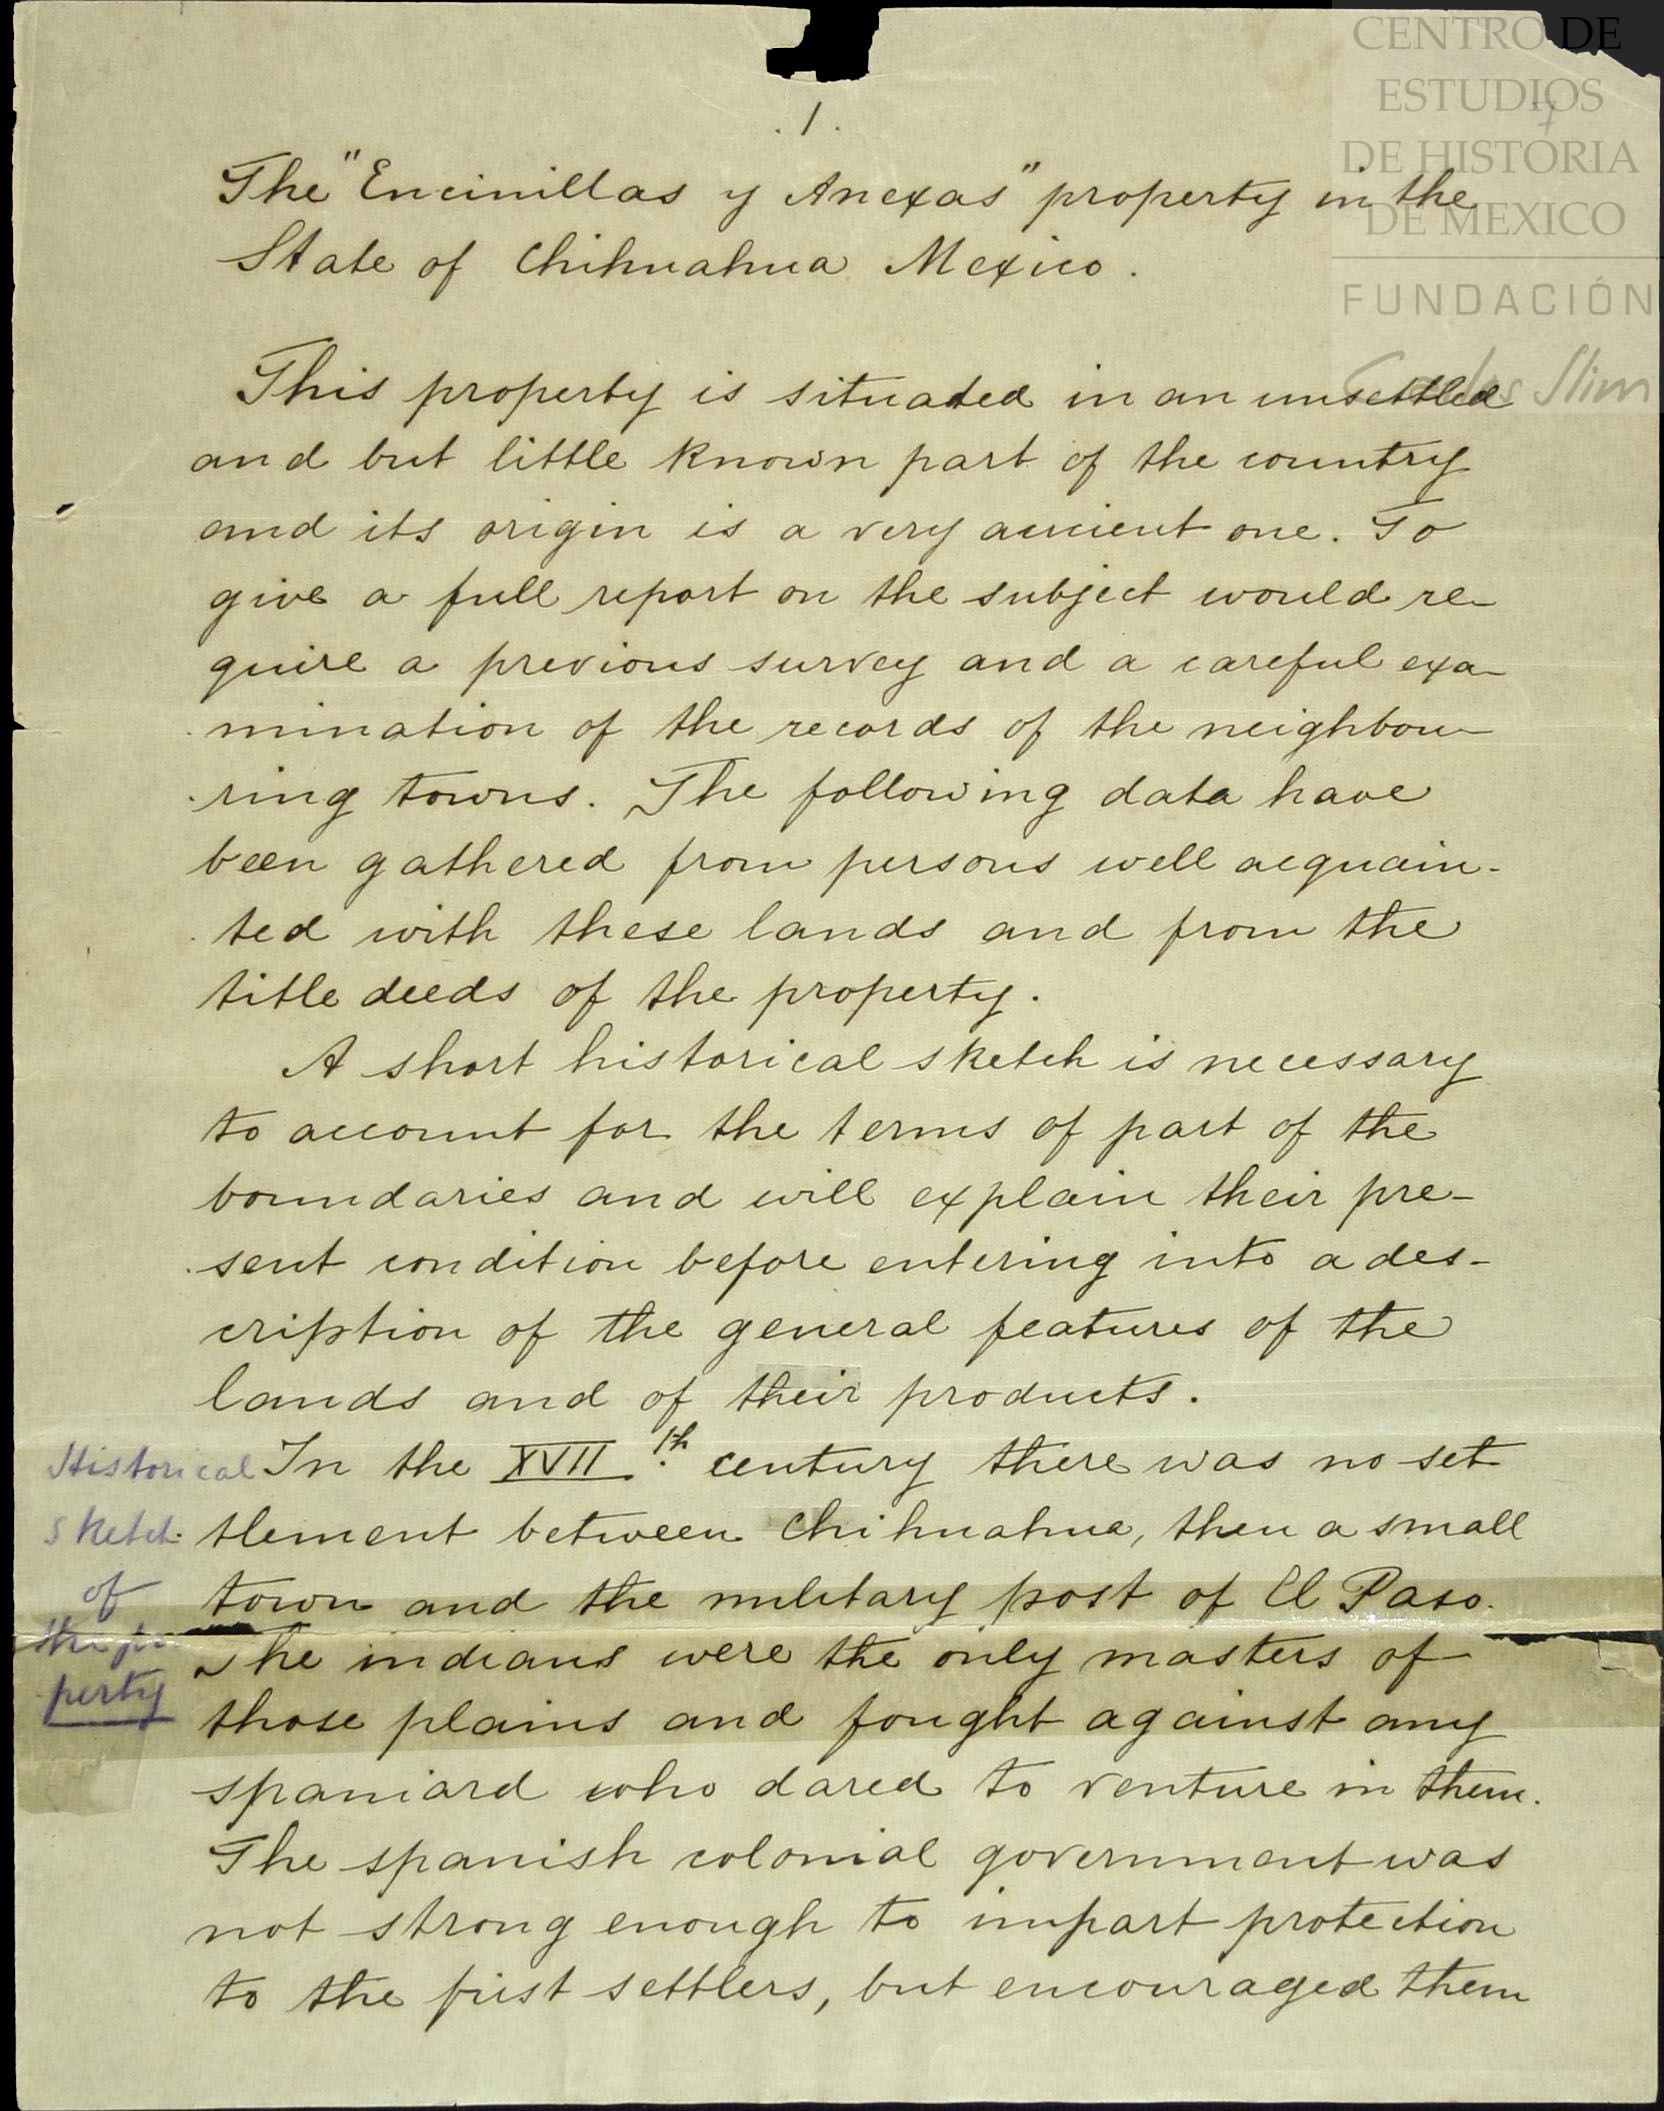 CENTRO DE
ESTUDIOS
DE HISTORIA
DE MEXICO
FUNDACIÓN
Carlos Slim
.1.
The "Encinillas y Anexas" property in the
State of Chihuahua Mexico.
This property is situated in an unsettled
and but little known part of the country
and its origin is a very ancient one. To
give a full report on the subject would re-
quire a previous survey and a careful exa-
mination of the records of the neighbou-
ring towns. The following data have
been gathered from persons well acquain-
ted with these lands and from the
title deeds of the property.
A short historical sketch is necessary
to account for the terms of part of the
boundaries and will explain their pre-
sent condition before entering into a des-
cription of the general features of the
lands and of their products.
Historical
sketch
of
the pro
perty
In the XVII.th century there was no set
tlement between Chihuahua, then a small
town and the military post of El Paso.
The indians were the only masters of
those plains and fought against any
spaniard who dared to venture in them.
The spanish colonial government was
not strong enough to impart protection
to the first settlers, but encouraged them